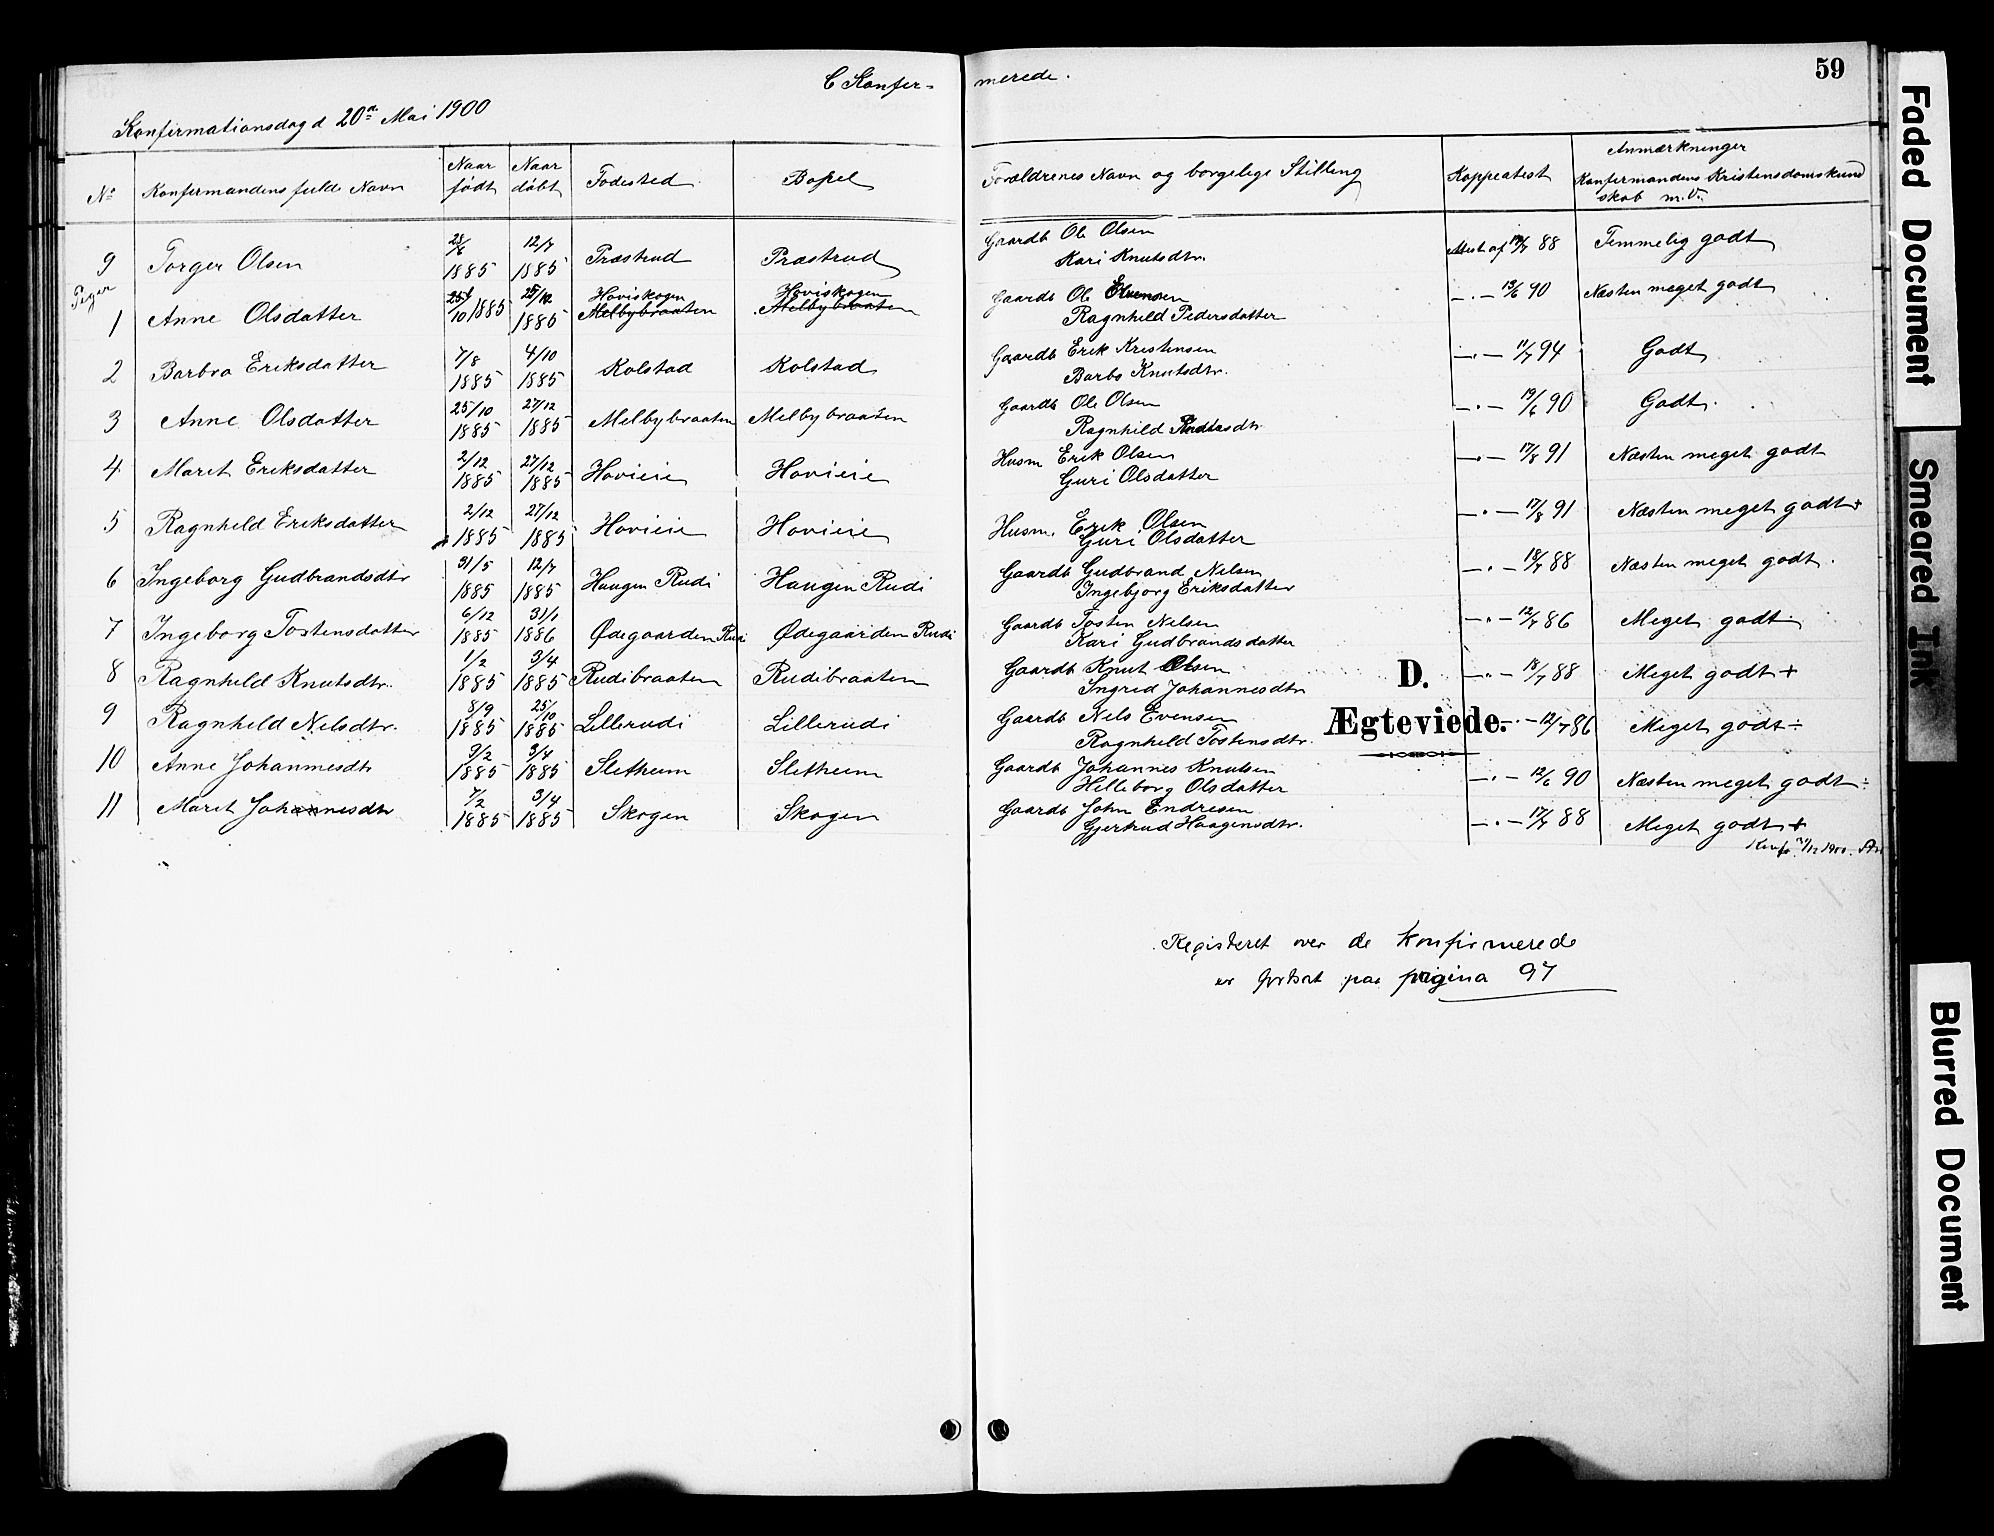 C Konfer- merede.
59
Konfirmationsdag d 20de Mai 1900
No Konfirmandens fulde Navn Naar født Naar døbt Fødested Bopel Forældrenes Navn og borgelige Stilling Koppeatest Anmærkninger Konfirmandens Kristensdomskundskab m.V.
9 Torger Olsen 28/6 1885 12/7 1885 Præstrud Præstrud Gaardb Ole Olsen Kari Knutsdtr. Attest af 17/7 88 Temmelig godt
Piger
1 Anne Olsdatter 25/10 1885 25/12 1885 Hoviskogen Melbybraaten Hoviskogen Melbybraaten Gaardb Ole Evensen Ragnhild Pedersdatter —"— 19/6 90 Næsten meget godt
2 Barbro Eriksdatter 7/8 1885 4/10 1885 Kolstad Kolstad Gaardb Erik Kristensen Barbo Knutsdtr. —"— 11/7 94 Godt
3 Anne Olsdatter 25/10 1885 27/12 1885 Melbybraaten Melbybraaten Gaardb Ole Olsen Ragnhild —"— 19/6 90 Godt.
4 Marit Eriksdatter 2/12 1885 27/12 1885 Hovieie Hovieie Husm Erik Olsen Guri Olsdatter —"— 17/8 91 Næsten meget godt
5 Ragnhild Eriksdatter 2/12 1885 27/12 1885 Hovieie Hovieie Husm. Erik Olsen Guri Olsdatter —"— 17/8 91 Næsten meget godt +
6 Ingeborg Gudbrandsdtr 31/5 1885 12/7 1885 Haugen Rudi Haugen Rudi Gaardb Gudbrand Nilsen Ingebjorg Eriksdatter —"— 18/7 88 Næsten meget godt.
7 Ingeborg Tostensdatter 6/12 1885 31/1 1886 Ødegaarden Rudi Ødegaarden Rudi Gaardb Tosten Nelsen Kari Gudbrandsdatter —"— 12/7 86 Meget godt
8 Ragnhild Knutsdtr. 1/2 1885 3/4 1885 Rudibraaten Rudibraaten Gaardb Knut Olsen Ingrid Johannesdtr —"— 18/7 88 Meget godt +
9 Ragnhild Nelsdtr. 8/9 1885 25/10 1885 Lillerudi Lillerudi Gaardb Nels Evensen Ragnhild Tostensdtr. —"— 12/7 86 Meget godt ÷
10 Anne Johannesdtr 9/2 1885 3/4 1885 Sletheim Sletheim Gaardb Johannes Knutsen Helleborg Olsdatter —"— 12/6 90 Næsten meget godt ÷
11 Marit Johannesdtr 7/2 1885 3/4 1885 Skogen Skogen Gaardb John Endresen Gjertrud Haagensdtr. —"— 17/7 88 Meget godt +
D.
Ægteviede.
Registeret over de Konfirmerede
er fortsat paa pagina 97
Faded Document
Smeared Ink
Blurred Document